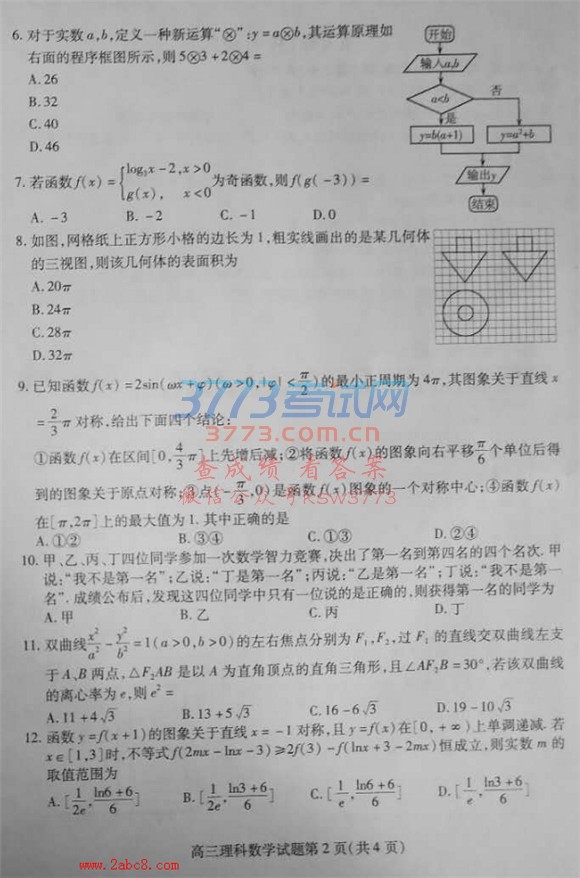 6. 对于实数 a,b,定义一种新运算“⊗”:y=a⊗b,其运算原理如
右面的程序框图所示,则5⊗3+2⊗4=
A. 26
B. 32
C. 40
D. 46
开始
输入a,b
a<b
否
是
y=b(a+1)
y=a²+b
输出y
结束
7. 若函数f(x)={log₃x-2,x>0
g(x), x<0
为奇函数,则f(g(-3))=
A. -3 B. -2 C. -1 D. 0
8. 如图,网格纸上正方形小格的边长为1,粗实线画出的是某几何体
的三视图,则该几何体的表面积为
A. 20π
B. 24π
C. 28π
D. 32π
9. 已知函数f(x)=2sin(ωx+φ)(ω>0,|φ|<π/2)的最小正周期为4π,其图象关于直线x
=2/3π对称,给出下面四个结论:
①函数f(x)在区间[0,4/3π]上先增后减;②将函数f(x)的图象向右平移π/6个单位后得
到的图象关于原点对称;③点(-π/3,0)是函数f(x)图象的一个对称中心;④函数f(x)
在[π,2π]上的最大值为1. 其中正确的是
A. ①② B. ③④ C. ①③ D. ②④
10. 甲、乙、丙、丁四位同学参加一次数学智力竞赛,决出了第一名到第四名的四个名次. 甲
说:“我不是第一名”;乙说:“丁是第一名”;丙说:“乙是第一名”;丁说:“我不是第一
名”. 成绩公布后,发现这四位同学中只有一位说的是正确的,则获得第一名的同学为
A. 甲 B. 乙 C. 丙 D. 丁
11. 双曲线x²/a²-y²/b²=1(a>0,b>0)的左右焦点分别为F₁,F₂,过F₁的直线交双曲线左支
于A、B两点,△F₂AB是以A为直角顶点的直角三角形,且∠AF₂B=30°,若该双曲线
的离心率为e,则e²=
A. 11+4√3 B. 13+5√3 C. 16-6√3 D. 19-10√3
12. 函数y=f(x+1)的图象关于直线x=-1对称,且y=f(x)在[0,+∞)上单调递减. 若
x∈[1,3]时,不等式f(2mx-lnx-3)≥2f(3)-f(lnx+3-2mx)恒成立,则实数m的
取值范围为
A. [1/2e,ln6+6/6] B. [1/2e,ln3+6/6] C. [1/e,ln6+6/6] D. [1/e,ln3+6/6]
高三理科数学试题第2页(共4页)
3773考试网
3773.com.cn
查成绩 看答案
微信公众号KSW3773
www.2abc8.com